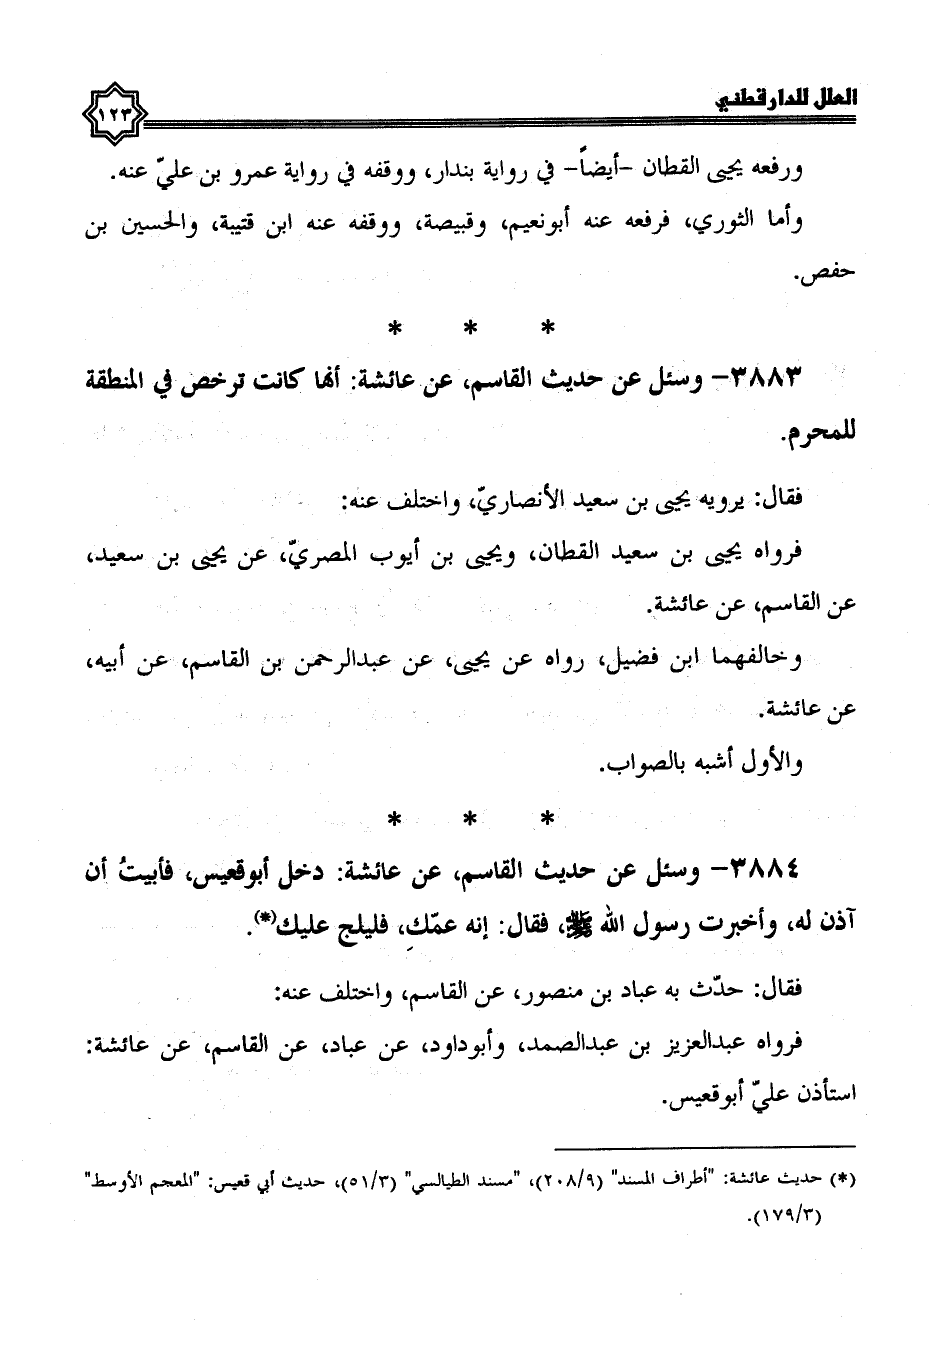 العلل للدارقطني
١٢٣
ورفعه يحيى القطان -أيضاً- في رواية بندار، ووقفه في رواية عمرو بن عليّ عنه.
وأما الثوري، فرفعه عنه أبونعيم، وقبيصة، ووقفه عنه ابن قتيبة، والحسين بن
حفص.
* * *
٣٨٨٣- وسئل عن حديث القاسم، عن عائشة: أنها كانت ترخص في المنطقة
للمحرم.
فقال: يرويه يحيى بن سعيد الأنصاريّ، واختلف عنه:
فرواه يحيى بن سعيد القطان، ويحيى بن أيوب المصريّ، عن يحيى بن سعيد،
عن القاسم، عن عائشة.
وخالفهما ابن فضيل، رواه عن يحيى، عن عبدالرحمن بن القاسم، عن أبيه،
عن عائشة.
والأول أشبه بالصواب.
* * *
٣٨٨٤- وسئل عن حديث القاسم، عن عائشة: دخل أبوقعيس، فأبيتُ أن
آذن له، وأخبرت رسول الله ﷺ، فقال: إنه عمّكِ، فليلج عليك(*).
فقال: حدّث به عباد بن منصور، عن القاسم، واختلف عنه:
فرواه عبدالعزيز بن عبدالصمد، وأبوداود، عن عباد، عن القاسم، عن عائشة:
استأذن عليّ أبوقعيس.
(*) حديث عائشة: "أطراف المسند" (٢٠٨/٩)، "مسند الطيالسي" (٥١/٣)، حديث أبي قعيس: "المعجم الأوسط"
(١٧٩/٣).